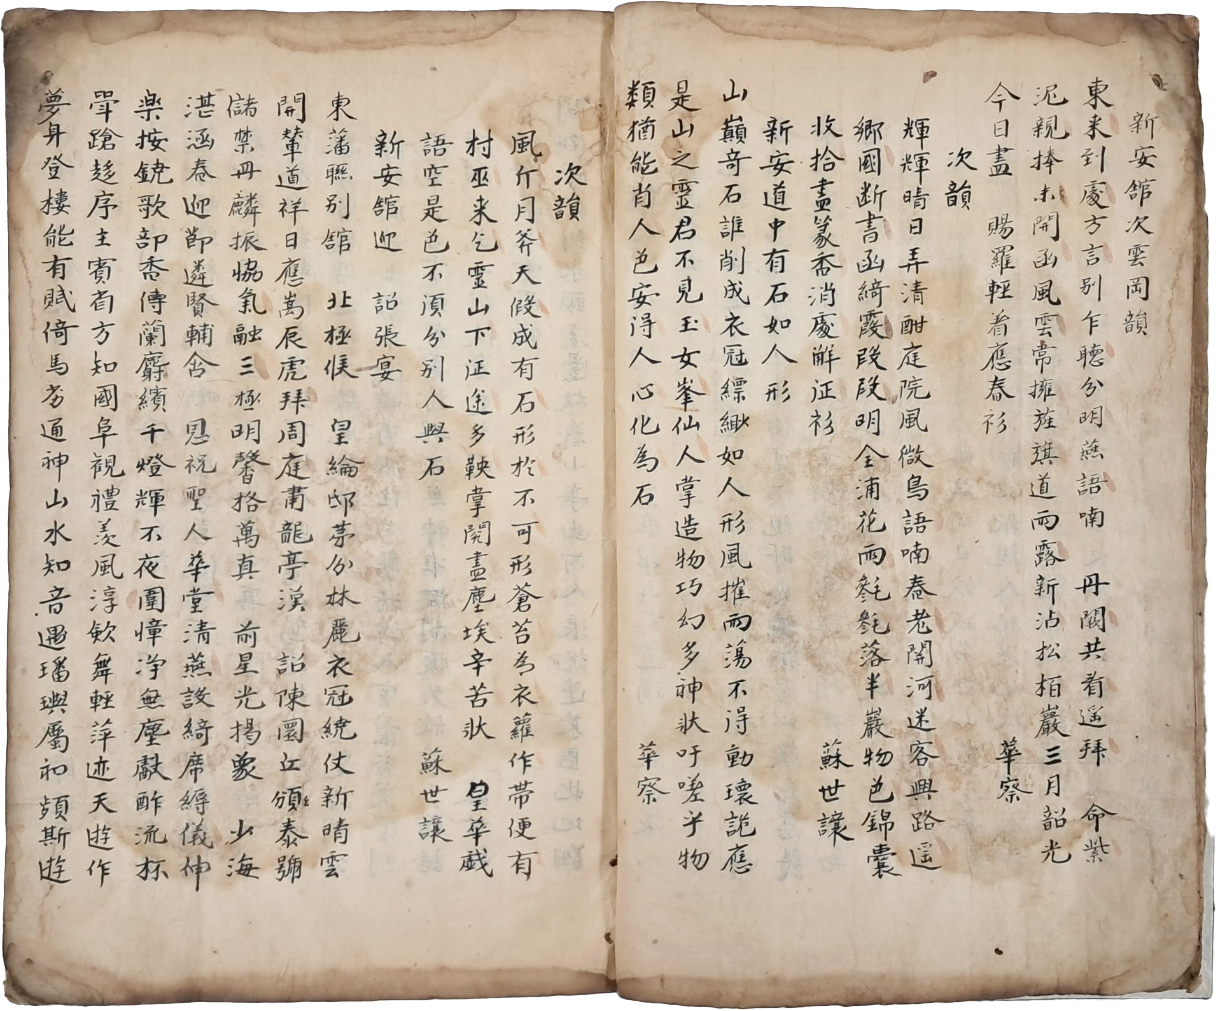 新安舘次雲岡韻
東来到處方言別乍聽分明燕語喃 丹闕共看遥拜 命紫
泥親捧未開函風雲常擁旌旗道雨露新沾松栢巖三月韶光
今日盡 賜羅輕着應春衫 華察
次韻
輝輝晴日弄清酣庭院風微鳥語喃春老關河迷客興路遥
郷國断書函綺霞段段明全浦花雨毿毿落半巖物色錦囊
收拾盡篆香消處觧征衫 蘇世讓
新安道中有石如人形
山巔竒石誰削成衣冠縹緲如人形風摧雨蕩不淂動瓌詭應
是山之靈君不見玉女峯仙人掌造物巧幻多神狀吁嗟乎物
類猶能肖人色安淂人心化為石 華察
次韻
風斤月斧天假成有石形於不可形蒼苔為衣蘿作帶便有
村巫来乞靈山下征途多鞅掌閱盡塵埃辛苦狀 皇華戯
語空是色不湏分別人與石 蘇世讓
新安舘迎 詔張宴
東藩聮别舘 北極候 皇綸邸茅分林麗衣冠繞仗新晴雲
開輦道祥日應嵩辰虎拜周庭肅龍亭漢 詔陳圜丘頒泰號
儲禁冊麟振恊氣融三極明馨格萬真 前星光揚彖 少海
湛涵春迎節遴賢輔含 恩祝聖人華堂清燕設綺席縟儀伸
楽按鐃歌部香傳蘭麝繽千燈輝不夜圍幛净無塵獻酢流杯
斝蹌趍序主賓省方知國阜觀禮羡風淳欸舞輕萍迹天遊作
夢身登樓能有賦倚馬芳通神山水知音遇璠璵屬和頻斯遊